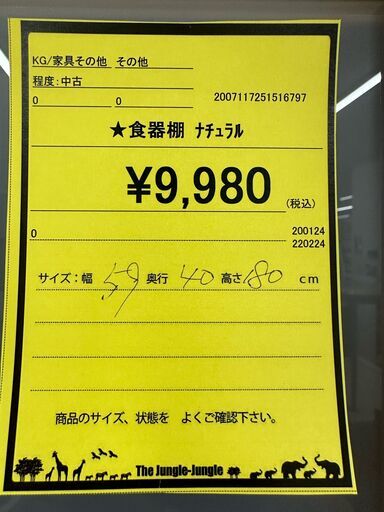 KG/家具その他 その他
程度:中古
0 0 2007117251516797
★食器棚 ﾅﾁｭﾗﾙ
¥9,980 (税込)
0 200124
220224
サイズ:幅 59 奥行 40 高さ 180 cm
商品のサイズ、状態を よくご確認下さい。
The Jungle-Jungle